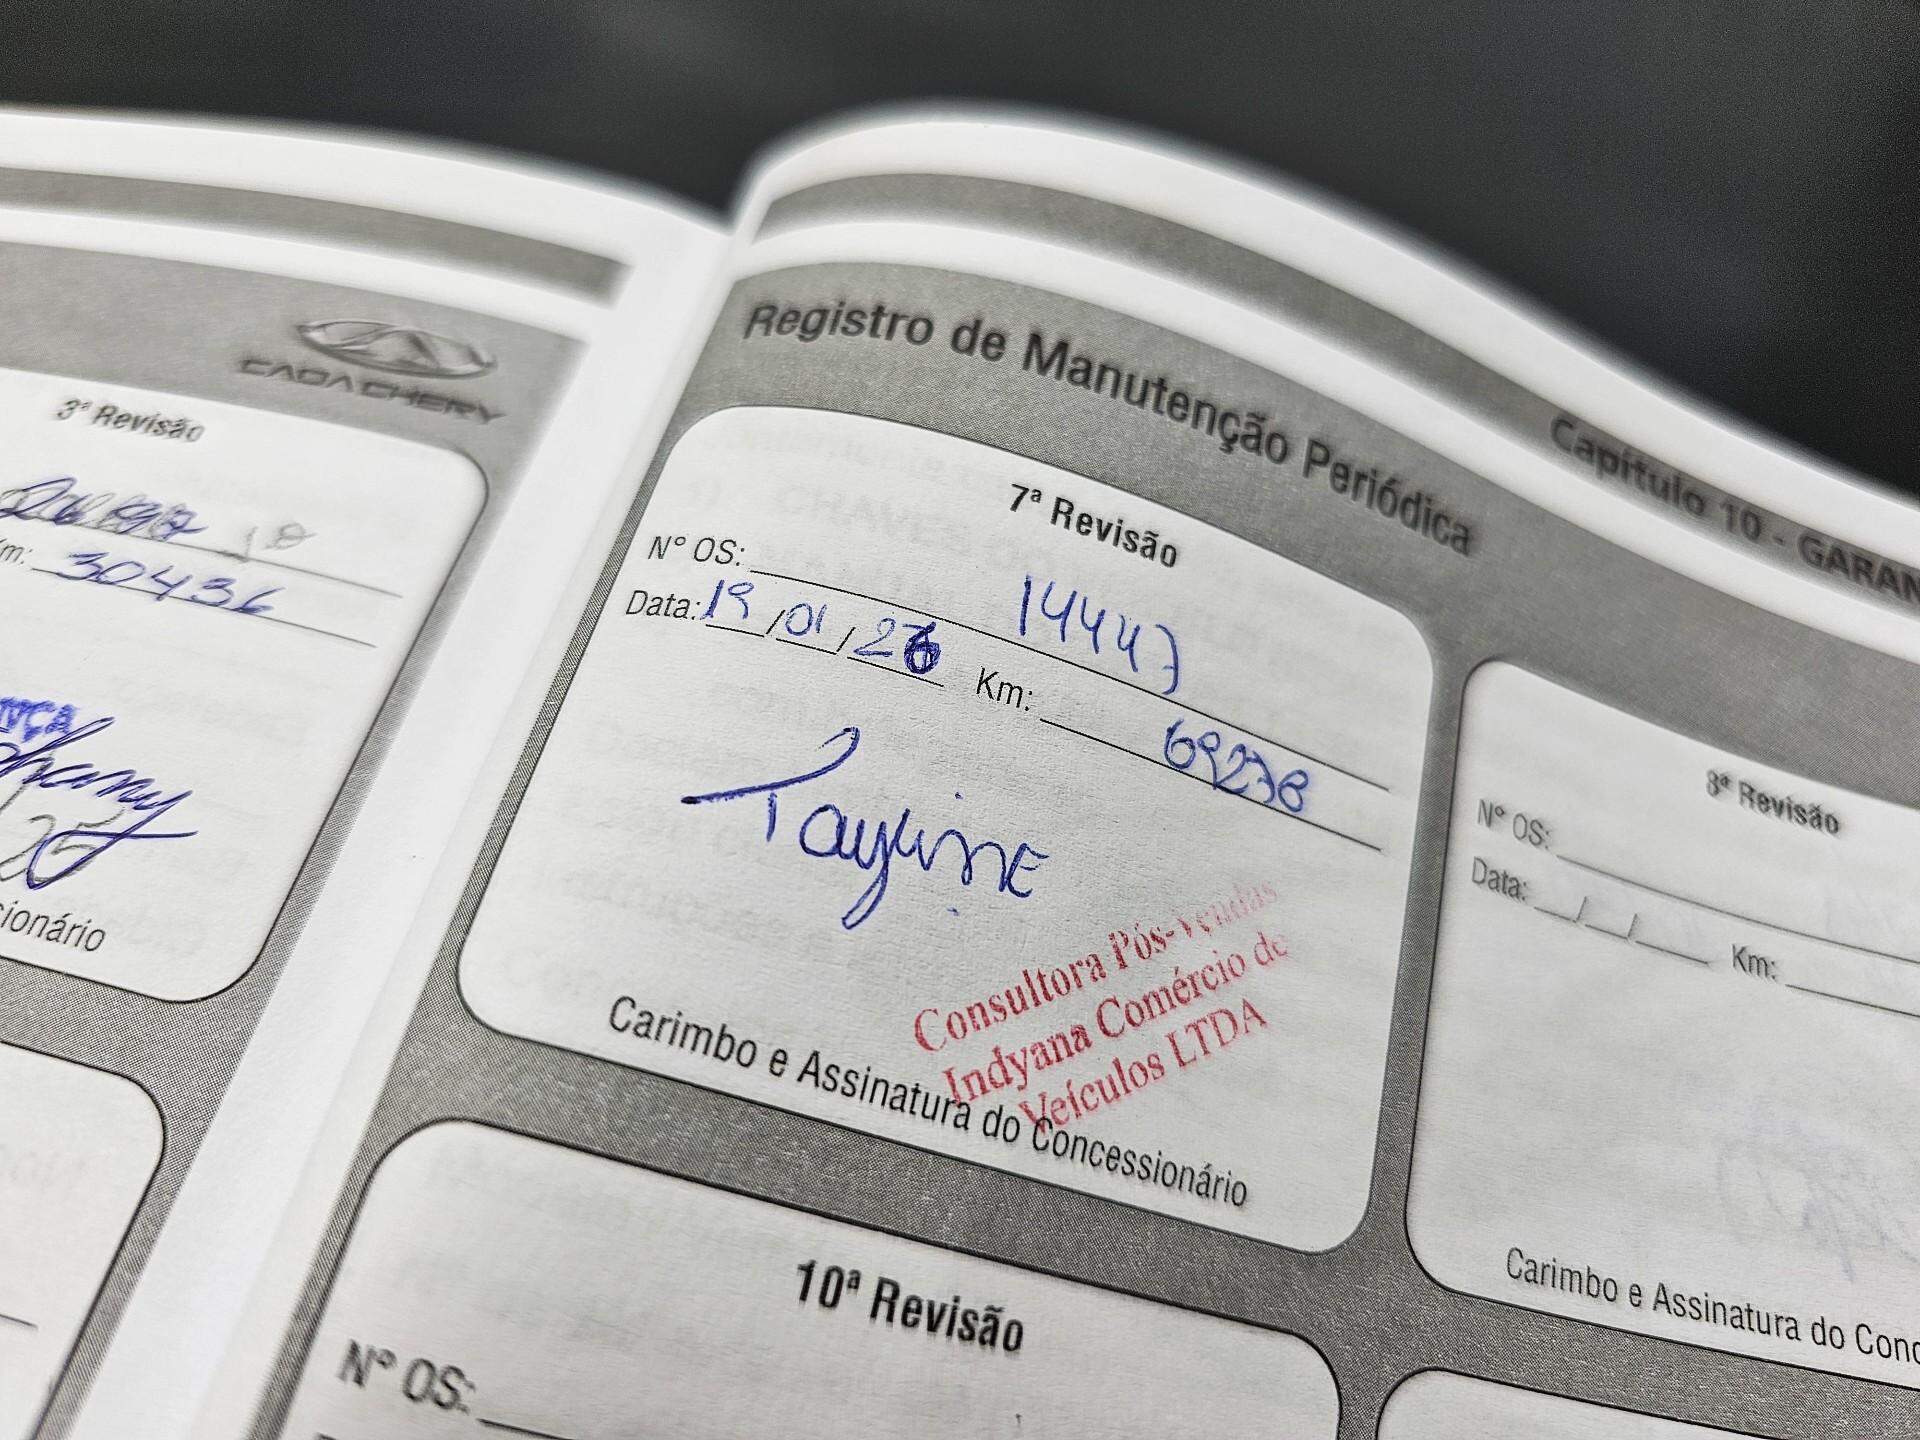 CAOA CHERY
3ª Revisão
Km: 30436
cionário
Capítulo 10 - GARAN
Registro de Manutenção Periódica
7ª Revisão
Nº OS: 14447
Data: 19/01/26 Km: 69278
Tayline
Consultora Pós-Vendas
Indyana Comércio de
Veículos LTDA
Carimbo e Assinatura do Concessionário
8ª Revisão
Nº OS:
Data: __/__/__ Km:
Carimbo e Assinatura do Conc
10ª Revisão
Nº OS: